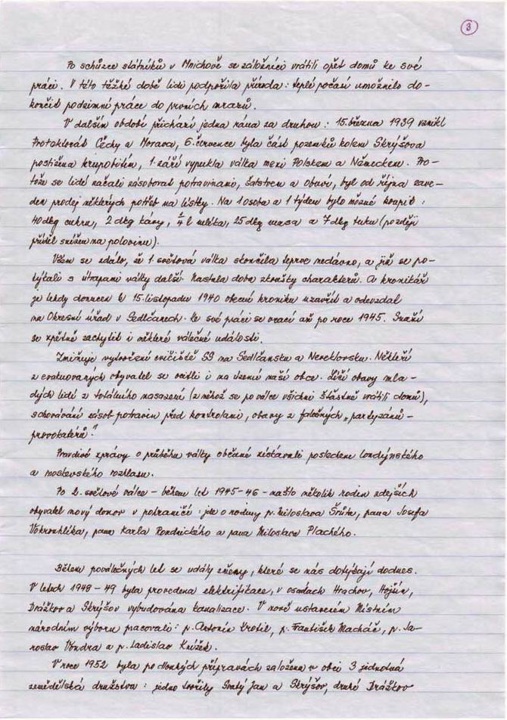 3
Po schůzce státníků v Mnichově se záložníci vrátili opět domů ke své
práci. V této těžké době lidi podpořila příroda: teplé počasí umožnilo do-
končit podzimní práce do prvních mrazů.
V dalším období přichází jedna rána za druhou: 15. března 1939 vznikl
Protektorát Čechy a Morava, 6. července byla část pozemků kolem Skrýšova
postižena krupobitím, 1. září vypukla válka mezi Polskem a Německem. Pro-
tože se lidé začali zásobovat potravinami, šatstvem a obuví, byl od října zave-
den prodej některých potřeb na lístky. Na 1 osobu a 1 týden bylo možné koupit:
40 dkg cukru, 2 dkg kávy, 1/4 l mléka, 25 dkg masa a 7 dkg tuku (později
příděl snížen na polovinu).
Všem se zdálo, že 1. světová válka skončila teprve nedávno, a již se po-
týkali s útrapami války další. Nastala doba zkoušky charakterů. A kronikář
je tehdy donucen k 15. listopadu 1940 obecní kroniku uzavřít a odevzdat
na Okresní úřad v Sedlčanech. Ke své práci se vrací až po roce 1945. Snaží
se zpětně zachytit i některé válečné události.
Zmiňuje vytvoření cvičiště SS na Sedlčansku a Neveklovsku. Někteří
z evakuovaných obyvatel se ocitli i na území naší obce. Líčí obavy mla-
dých lidí z totálního nasazení (z něhož se po válce všichni šťastně vrátili domů),
schovávání zásob potravin před kontrolami, obavy z falešných „partyzánů-
provokatérů“.
Pravdivé zprávy o průběhu války občané získávali poslechem londýnského
a moskevského rozhlasu.
Po 2. světové válce - během let 1945-46 - našlo několik rodin zdejších
obyvatel nový domov v pohraničí: jde o rodiny p. Miloslava Šrůta, pana Josefa
pana Karla a pana Miloslava Plachého.
Během poválečných let se udály změny, které se nás dotýkají dodnes.
V letech 1948-49 byla provedena elektrifikace, v osadách Hrachov, Hojšín,
Drážkov a Skrýšov vybudována kanalizace. V nově ustaveném Místním
národním výboru pracovali: p. Antonín p. František Macháč, p. Ja-
roslav Vondra a p. Ladislav Kužel.
V roce 1952 byla po dlouhých přípravách založena v obci 3 jednotná
zemědělská družstva: jedno tvořily Svatý Jan a Skrýšov, druhé Drážkov